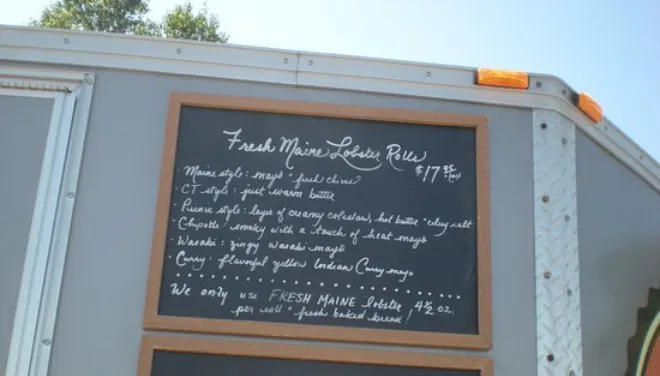 Fresh Maine Lobster Rolls
$17
· Maine style: mayo & fresh chives
· CT style: just warm butter
· Picnic style: layer of creamy coleslaw, hot butter & celery salt
· Chipotle: smoky with a touch of heat mayo
· Wasabi: zingy wasabi mayo
· Curry: flavorful yellow Indian Curry mayo
We only use FRESH MAINE lobster 4½ oz.
per roll & fresh baked bread!